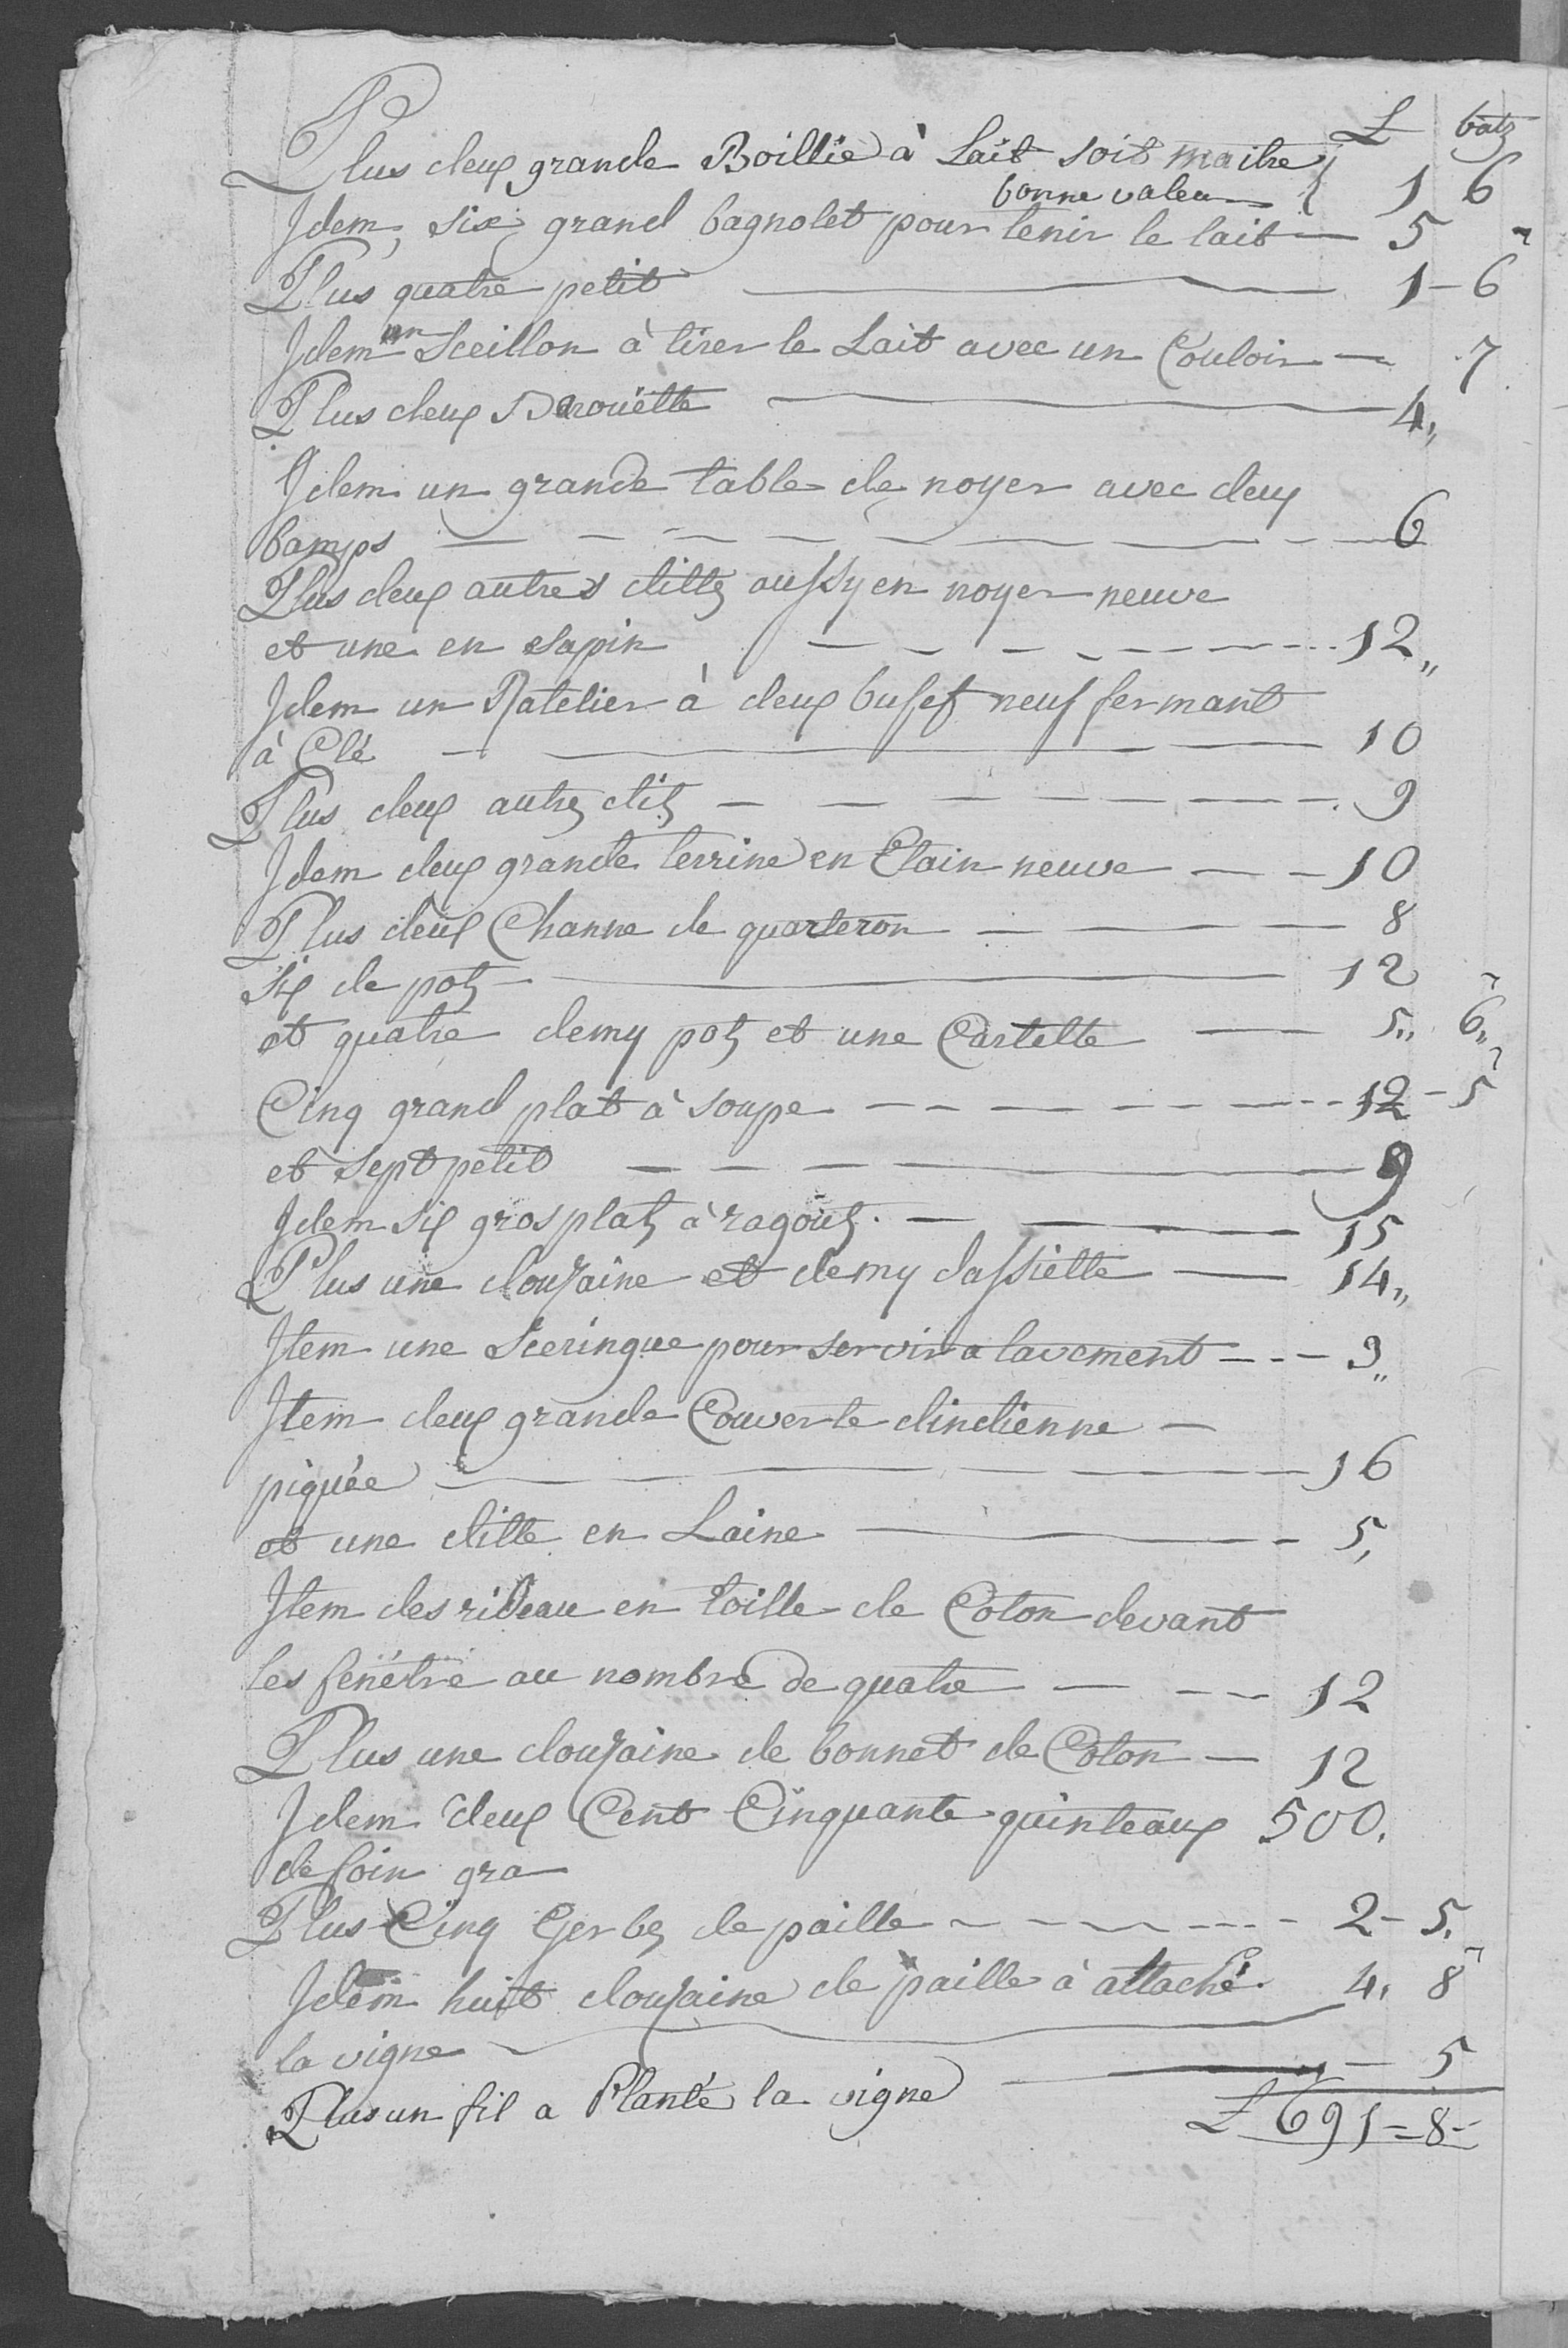 L batz
Plus deux grande Boillie à Lait soit maitre
bonne valeu 1 6
Idem, six grand bagnolet pour tenir le lait — 5
Plus quatre petit — 1 – 6
Idem un Sceillon à tirer le Lait avec un Couloir — 7
Plus deux Barouëtte — 4,,
Idem un grande table de noyer avec deux
bamps — 6
Plus deux autres ditte aussy en noyer neuve
et une en sapin — 12,,
Idem un Ratelier à deux bufet neuf fermant
à Clé — 10
Plus deux autre dit — 9
Idem deux grande terrine en Etain neuve — 10
Plus deux Channe de quarteron — 8
six de pot — 12
et quatre demy pot et une Cartette — 5,, 6,,
Cinq grand plat à soupe — 12 – 5
et sept petit — 9
Idem six gros plat à ragoût. — 15
Plus une douzaine et demy dassiette — 14,,
Item une Sceringue pour servir a lavement — 3,,
Item deux grande Couverte dindienne —
piquée — 16
et une ditte en Laine — 5,
Item des rideau en toille de Coton devant
les fenétre au nombre de quatre — 12
Plus une douzaine de bonnet de Coton — 12
Idem deux Cent Cinquante quinteaux 500.
de foin gra
Plus Cinq Gerbe de paille — 2 – 5.
Idem huit douzaine de paille à attaché 4, 8
la vigne
Plus un fil a Planté la vigne — 5
L 691 = 8 –